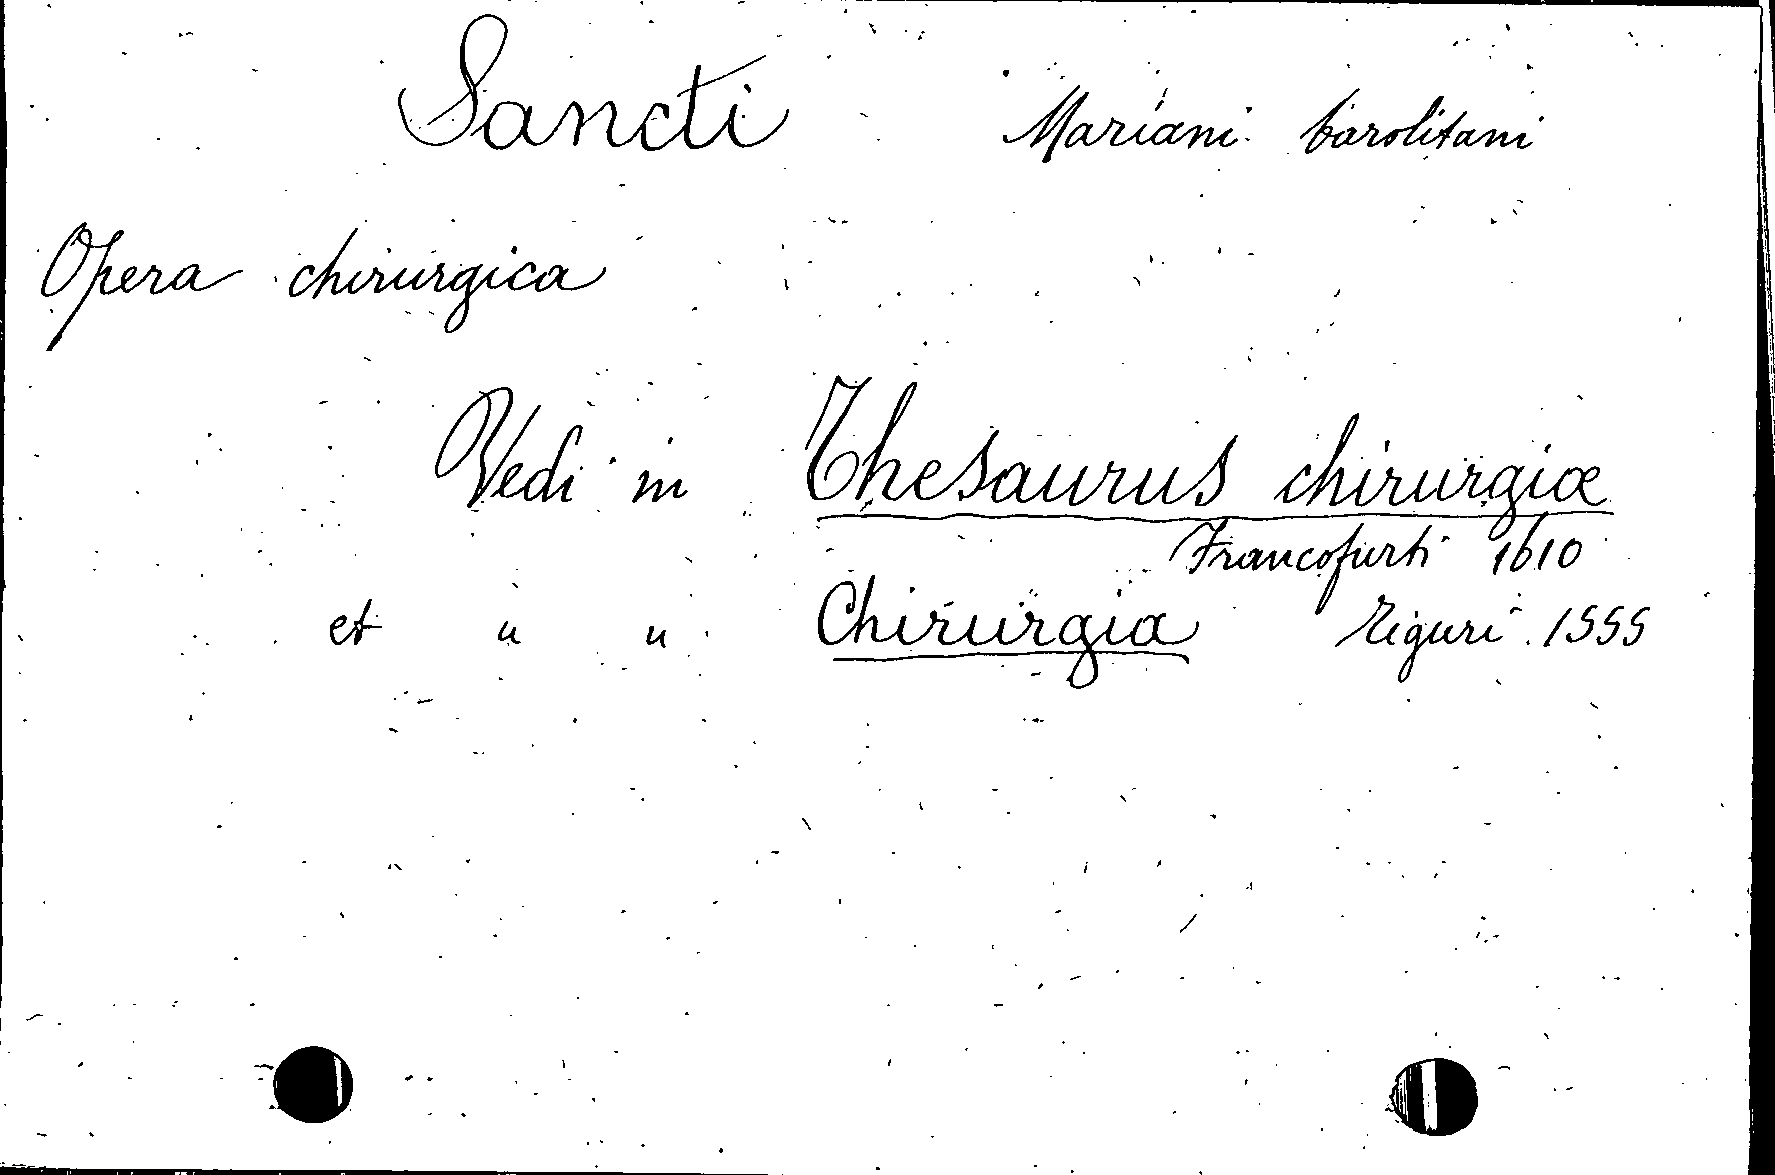 Sancti Mariani barolitani
Opera chirurgica
Vedi in Thesaurus chirurgiæ
Francofurti 1610
et " " Chirurgia Tiguri 1555